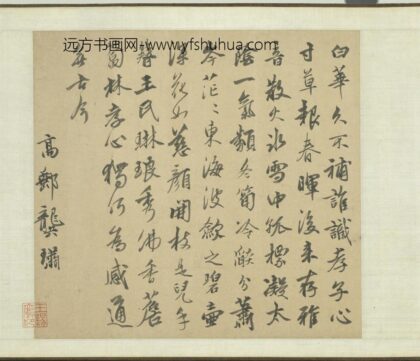 远方书画网-www.yfshuhua.com
白華久不補誰識孝子心
寸草報春暉後來存雅
音散火冰雪中孤標凝太
陰一氣類冬筍冷兮蕭
岑茫〻東海波歛之碧壺
深慈顏開枝是兒手
簪王氏琳琅秀佛香薝
蔔林孝心獨何為感通
無古今
高郵龔璛